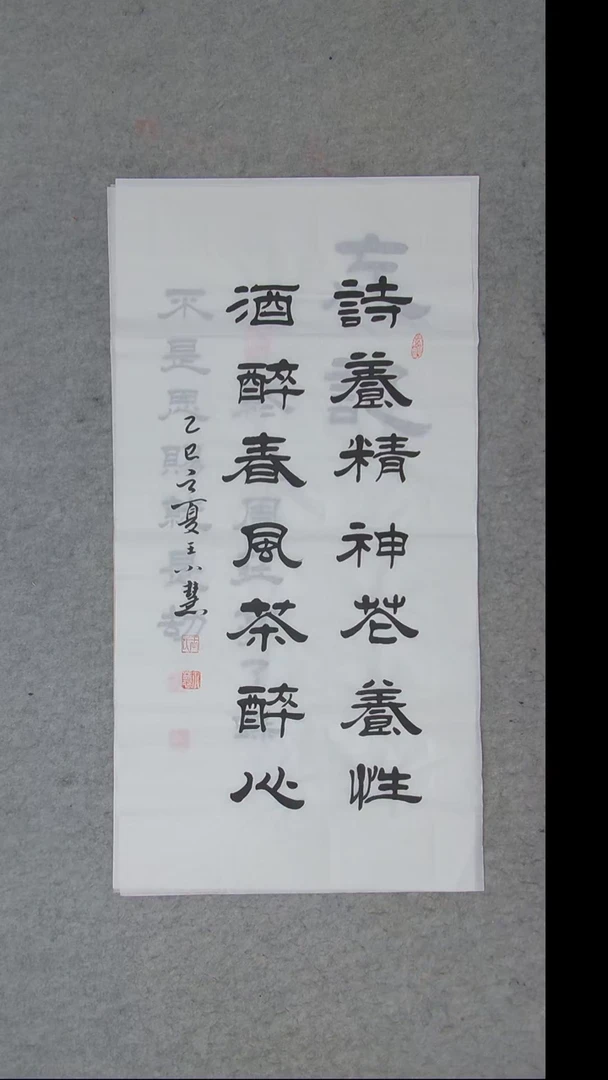 詩養精神花養性
酒醉春風茶醉心
乙巳之夏王小慧